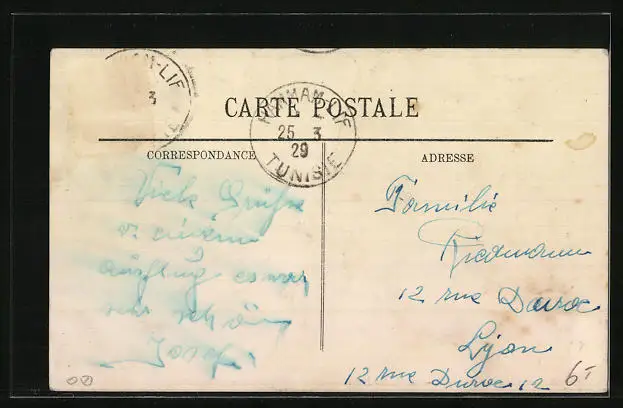 CARTE POSTALE
HAMMAM-LIF
25 3
29
TUNISIE
M-LIF
3
CORRESPONDANCE
ADRESSE
Viele Grüße
v. einem
Ausflug es war
sehr schön
Josef.
Familie
Riedmann
12 rue Duroc
Lyon
12 rue Duroc 12
6